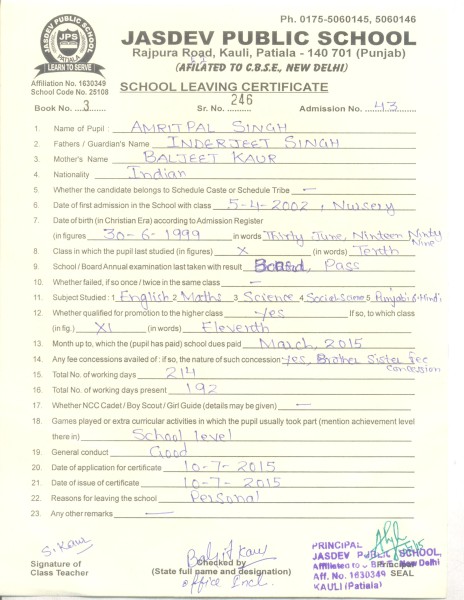 JASDEV PUBLIC SCHOOL
JPS
PATIALA
LEARN TO SERVE
Ph. 0175-5060145, 5060146
JASDEV PUBLIC SCHOOL
Rajpura Road, Kauli, Patiala - 140 701 (Punjab)
(AFILATED TO C.B.S.E., NEW DELHI)
Affiliation No. 1630349
School Code No. 25108
SCHOOL LEAVING CERTIFICATE
Book No. 3 Sr. No. 246 Admission No. 43
1. Name of Pupil : AMRITPAL SINGH
2. Fathers / Guardian's Name INDERJEET SINGH
3. Mother's Name BALJEET KAUR
4. Nationality Indian
5. Whether the candidate belongs to Schedule Caste or Schedule Tribe —
6. Date of first admission in the School with class 5-4-2002, Nursery
7. Date of birth (in Christian Era) according to Admission Register
(in figures) 30-6-1999 in words Thirty June, Ninteen Ninty Nine
8. Class in which the pupil last studied (in figures) X (in words) Tenth
9. School / Board Annual examination last taken with result Board, Pass
10. Whether failed, if so once / twice in the same class —
11. Subject Studied : 1 English 2 Maths 3 Science 4 Social science 5 Punjabi 6 Hindi
12. Whether qualified for promotion to the higher class yes If so, to which class
(in fig.) XI (in words) Eleventh
13. Month up to, which the (pupil has paid) school dues paid March, 2015
14. Any fee concessions availed of : if so, the nature of such concession yes, Brother Sister fee concession
15. Total No. of working days 214
16. Total No. of working days present 192
17. Whether NCC Cadet / Boy Scout / Girl Guide (details may be given) —
18. Games played or extra curricular activities in which the pupil usually took part (mention achievement level
there in) School level
19. General conduct Good
20. Date of application for certificate 10-7-2015
21. Date of issue of certificate 10-7-2015
22. Reasons for leaving the school Personal
23. Any other remarks —
S. Kaur
Signature of
Class Teacher
Baljit Kaur
Checked by
(State full name and designation)
Office Incl.
PRINCIPAL
JASDEV PUBLIC SCHOOL,
Affiliated to New Delhi
Aff. No. 1630349
KAULI (PATIALA)
Principal
SEAL